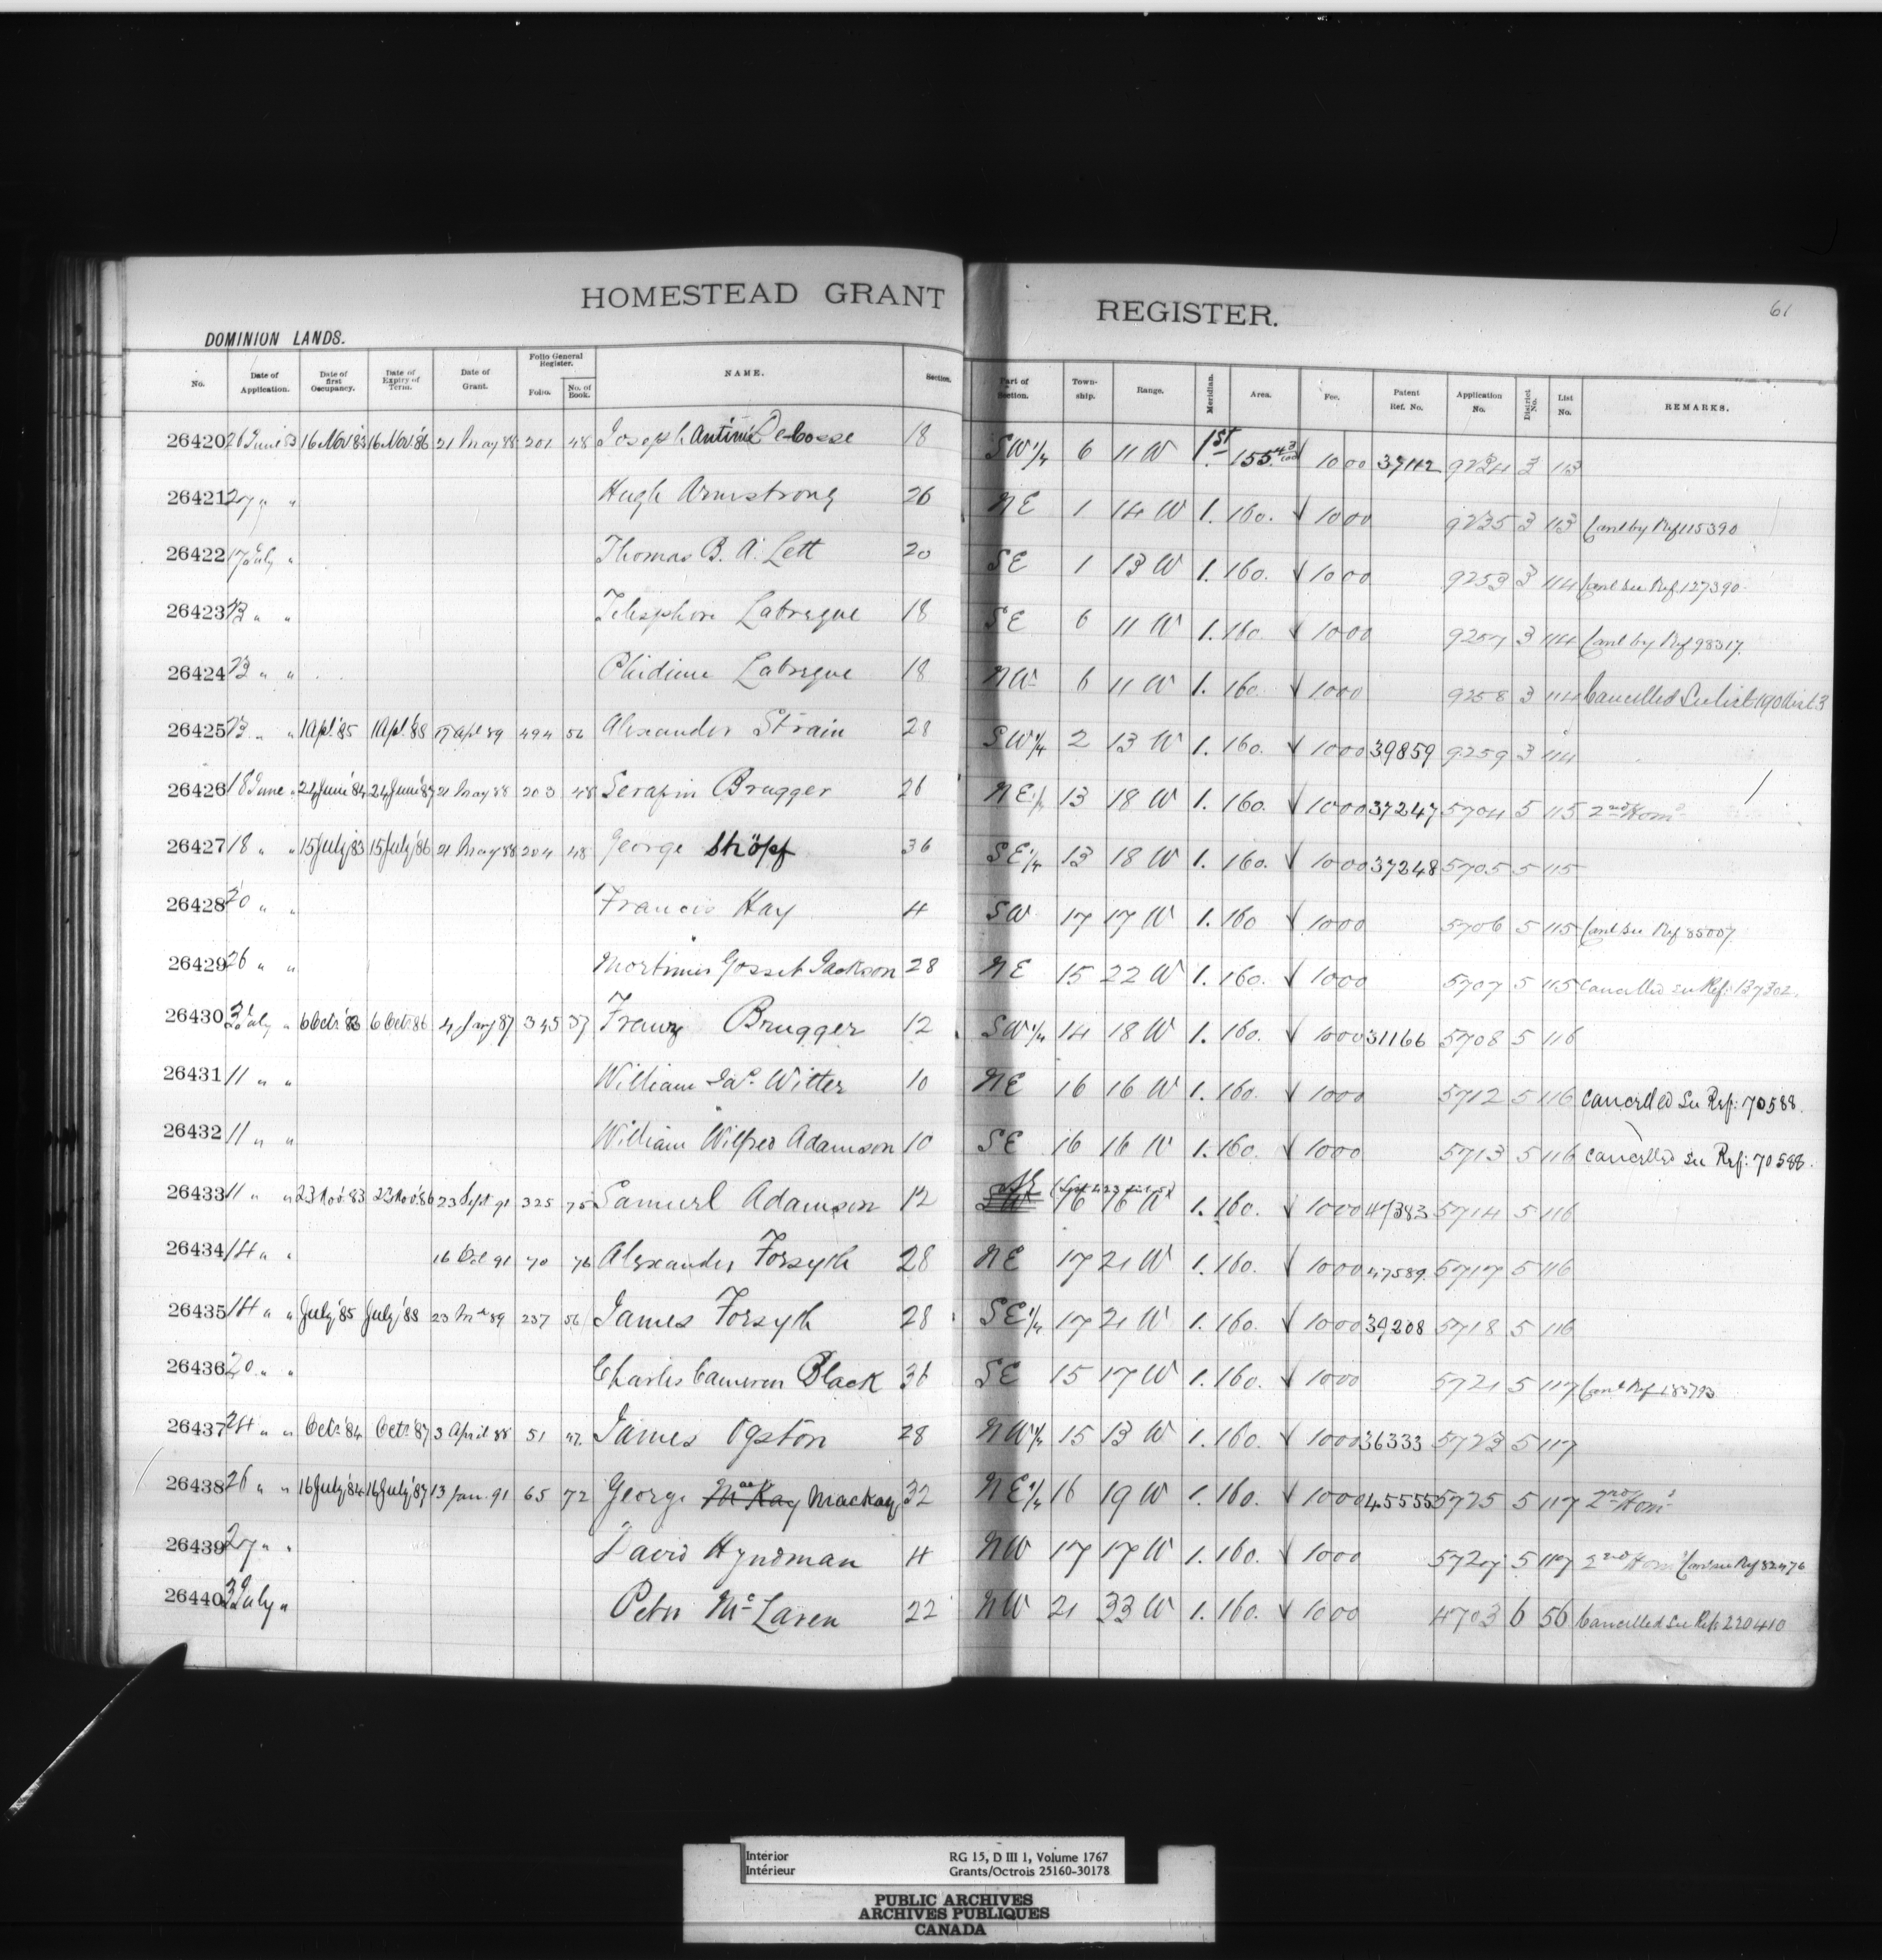 HOMESTEAD GRANT REGISTER. 61
DOMINION LANDS.
No. Date of Application. Date of first Occupancy. Date of Expiry of Term. Date of Grant. Folio General Register. Folio. No. of Book. NAME. Section. Part of Section. Township. Range. Meridian. Area. Fee. Patent Ref. No. Application No. District No. List No. REMARKS.
26420 26 June 83 16 Nov '83 16 Nov '86 21 May 88 201 48 Joseph Antime 18 SW 1/4 6 11 W 1st 155 43/100 10 00 37112 9234 3 113
26421 27 " " Hugh Armstrong 26 NE 1 14 W 1. 160. √ 10 00 9235 3 113 Canl by Ref 115390
26422 17 July " Thomas B. A. Lett 20 SE 1 13 W 1. 160. √ 10 00 9253 3 114 Canl See Ref. 127390
26423 23 " " Telesphore Labreque 18 SE 6 11 W 1. 160. √ 10 00 9257 3 114 Canl by Ref 98317.
26424 23 " " Labreque 18 NW 6 11 W 1. 160. √ 10 00 9258 3 114 Cancelled See list 190 Dist 3
26425 23 " " 1 Apl '85 1 Apl '88 17 Apl 89 494 56 Alexander Strain 28 SW 1/4 2 13 W 1. 160. √ 10 00 39859 9259 3 114
26426 18 June " 24 June '84 24 June '87 21 May 88 203 48 Serafin Brugger 26 NE 1/4 13 18 W 1. 160. √ 10 00 37247 5704 5 115 2nd Hom d
26427 18 " " 15 July '83 15 July '86 21 May 88 204 48 George Stöpf 36 SE 1/4 13 18 W 1. 160. √ 10 00 37248 5705 5 115
26428 20 " " Francis Hay 4 SW 17 17 W 1. 160 √ 10 00 5706 5 115 Canl See Ref 85007.
26429 26 " " Mortimer Gosset Jackson 28 NE 15 22 W 1. 160. √ 10 00 5707 5 115 Cancelled see Ref: 137302.
26430 3 July " 6 Octr '83 6 Octr 86 4 Jany 87 345 37 Franz Brugger 12 SW 1/4 14 18 W 1. 160. √ 10 00 31166 5708 5 116
26431 11 " " William Jas. Witter 10 NE 16 16 W 1. 160. √ 10 00 5712 5 116 Cancelled See Ref: 70588.
26432 11 " " William Wilfred Adamson 10 SE 16 16 W 1. 160. √ 10 00 5713 5 116 Cancelled See Ref: 70588.
26433 11 " " 23 Nov. 83 23 Nov. 86 23 Sept 91 325 75 Samuel Adamson 12 NE 16 16 W 1. 160. √ 10 00 47383 5714 5 116
26434 14 " " 16 Oct 91 70 76 Alexander Forsyth 28 NE 17 21 W 1. 160. √ 10 00 47589. 5717 5 116
26435 14 " " July '85 July '88 23 Mar 89 237 56 James Forsyth 28 SE 1/4 17 21 W 1. 160. √ 10 00 39208 5718 5 116
26436 20 " " Charles Cameron Black 36 SE 15 17 W 1. 160. √ 10 00 5721 5 117 Canl Ref 183793
26437 24 " " Octr '84 Octr '87 3 April 88 51 47. James Ogston 28 NW 1/4 15 13 W 1. 160. √ 10 00 36333 5723 5 117
26438 26 " " 16 July '84 16 July '87 13 Jan. 91 65 72 George McKay Mackay 32 NE 1/4 16 19 W 1. 160. √ 10 00 45555 5725 5 117 2nd Hom d
26439 27 " " David Hyndman 4 NW 17 17 W 1. 160. √ 10 00 5727 5 117 2nd Hom d Canl see Ref 82476
26440 3 July " Peter McLaren 22 NW 21 33 W 1. 160. √ 10 00 4703 6 56 Cancelled See Ref: 220410
Interior RG 15, D III 1, Volume 1767
Intérieur Grants/Octrois 25160-30178
PUBLIC ARCHIVES
ARCHIVES PUBLIQUES
CANADA